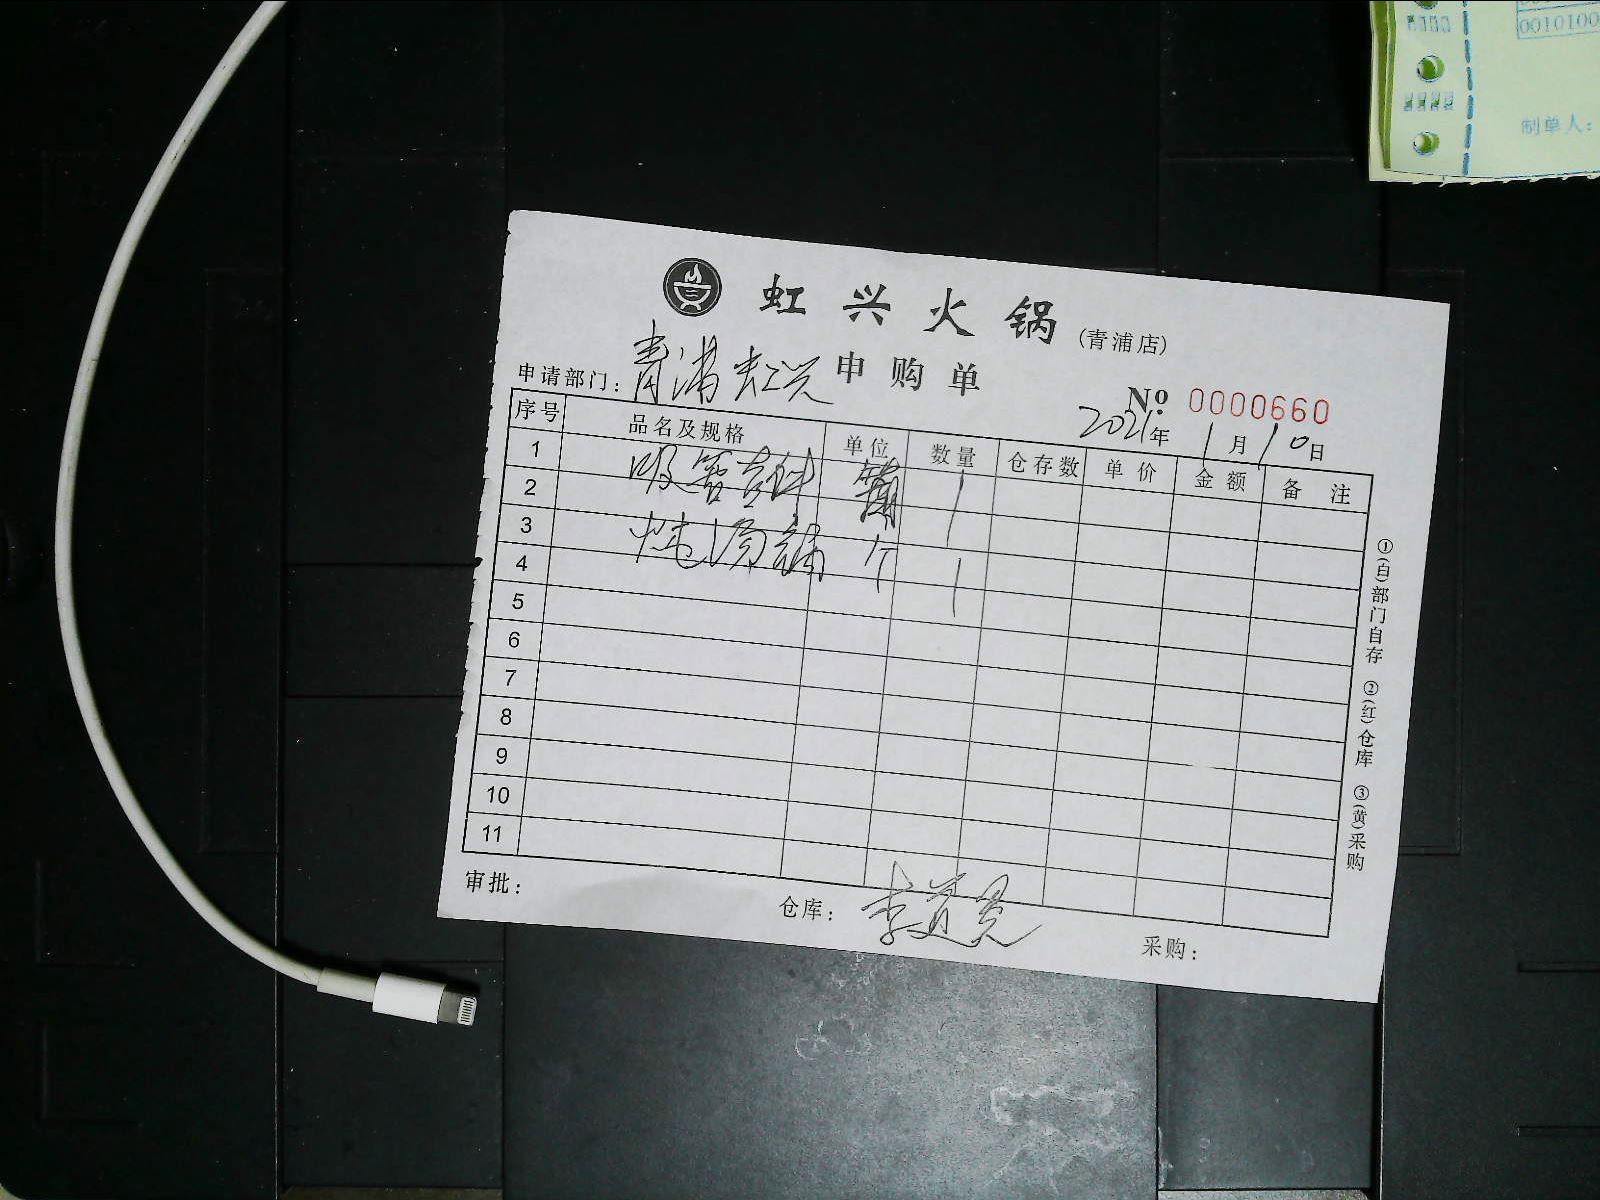 0010100
制单人：
虹兴火锅(青浦店)
申购单
申请部门：青浦虹兴
No 0000660
2021年1月10日
序号 品名及规格 单位 数量 仓存数 单价 金额 备注
1 吸管套件 1
2
3 炖汤 个 1
4
5
6
7
8
9
10
11
①(白)部门自存 ②(红)仓库 ③(黄)采购
审批： 仓库：李 采购：